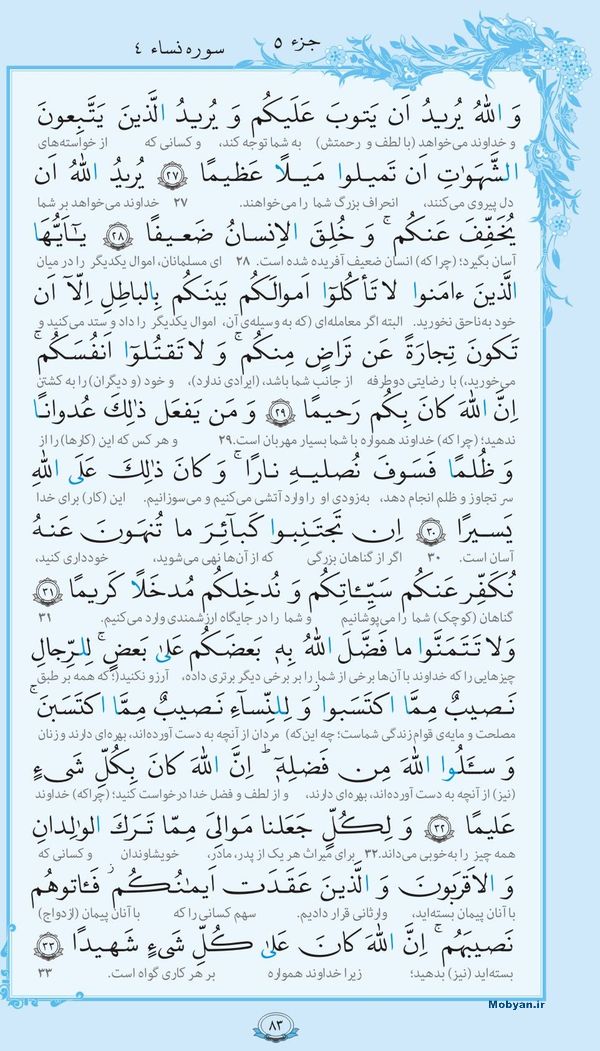 جزء ۵
سوره نساء ۴
وَ اللهُ يُرِيدُ اَن يَتوبَ عَلَيكُم وَ يُرِيدُ الَّذينَ يَتَّبِعونَ
و خداوند می‌خواهد (با لطف و رحمتش) به شما توجه کند، و کسانی که از خواسته‌های
الشَّهَواتِ اَن تَميلوا مَيلًا عَظيمًا ﴿۲۷﴾ يُرِيدُ اللهُ اَن
دل پیروی می‌کنند، انحراف بزرگ شما را می‌خواهند. ۲۷ خداوند می‌خواهد بر شما
يُخَفِّفَ عَنكُم ۚ وَ خُلِقَ الاِنسانُ ضَعيفًا ﴿۲۸﴾ يٰٓاَيُّهَا
آسان بگیرد؛ (چرا که) انسان ضعیف آفریده شده است. ۲۸ ای مسلمانان، اموال یکدیگر را در میان
الَّذينَ ءامَنوا لا تَأكُلوٓا اَموالَكُم بَينَكُم بِالباطِلِ اِلّآ اَن
خود به‌ناحق نخورید. البته اگر معامله‌ای (که به وسیله‌ی آن، اموال یکدیگر را داد و ستد می‌کنید و
تَكونَ تِجارَةً عَن تَراضٍ مِنكُم ۚ وَ لا تَقتُلوٓا اَنفُسَكُم ۚ
می‌خورید،) با رضایتی دوطرفه از جانب شما باشد، (ایرادی ندارد)، و خود (و دیگران) را به کشتن
اِنَّ اللهَ كانَ بِكُم رَحيمًا ﴿۲۹﴾ وَ مَن يَفعَل ذٰلِكَ عُدوانًا
ندهید؛ (چرا که) خداوند همواره با شما بسیار مهربان است. ۲۹ و هر کس که این (کارها) را از
وَ ظُلمًا فَسَوفَ نُصليهِ نارًا ۚ وَ كانَ ذٰلِكَ عَلَى اللهِ
سر تجاوز و ظلم انجام دهد، به‌زودی او را وارد آتشی می‌کنیم و می‌سوزانیم. این (کار) برای خدا
يَسيرًا ﴿۳۰﴾ اِن تَجتَنِبوا كَبآئِرَ ما تُنهَونَ عَنهُ
آسان است. ۳۰ اگر از گناهان بزرگی که از آن‌ها نهی می‌شوید، خودداری کنید،
نُكَفِّر عَنكُم سَيِّـٔاتِكُم وَ نُدخِلكُم مُدخَلًا كَريمًا ﴿۳۱﴾
گناهان (کوچک) شما را می‌پوشانیم و شما را در جایگاه ارزشمندی وارد می‌کنیم. ۳۱
وَ لا تَتَمَنَّوا ما فَضَّلَ اللهُ بِهٖ بَعضَكُم عَلىٰ بَعضٍ ۚ لِلرِّجالِ
چیزهایی را که خداوند با آن‌ها برخی از شما را بر برخی دیگر برتری داده، آرزو نکنید؛ (که همه بر طبق
نَصيبٌ مِمَّا اكتَسَبوا ۖ وَ لِلنِّسآءِ نَصيبٌ مِمَّا اكتَسَبنَ ۚ
مصلحت و مایه‌ی قوام زندگی شماست؛ چه این‌که) مردان از آنچه به دست آورده‌اند، بهره‌ای دارند و زنان
وَ سـَٔلُوا اللهَ مِن فَضلِهٖٓ ۗ اِنَّ اللهَ كانَ بِكُلِّ شَیءٍ
(نیز) از آنچه به دست آورده‌اند، بهره‌ای دارند، و از لطف و فضل خدا درخواست کنید؛ (چراکه) خداوند
عَليمًا ﴿۳۲﴾ وَ لِكُلٍّ جَعَلنا مَوالِیَ مِمّا تَرَكَ الوالِدانِ
همه چیز را به‌خوبی می‌داند. ۳۲ برای میراث هر یک از پدر، مادر، خویشاوندان و کسانی که
وَ الاَقرَبونَ ۚ وَ الَّذينَ عَقَدَت اَيمانُكُم فَـٔاتوهُم
با آنان پیمان بسته‌اید، وارثانی قرار دادیم. سهم کسانی را که با آنان پیمان (ازدواج)
نَصيبَهُم ۚ اِنَّ اللهَ كانَ عَلىٰ كُلِّ شَیءٍ شَهيدًا ﴿۳۳﴾
بسته‌اید (نیز) بدهید؛ زیرا خداوند همواره بر هر کاری گواه است. ۳۳
۸۳
Mobyan.ir